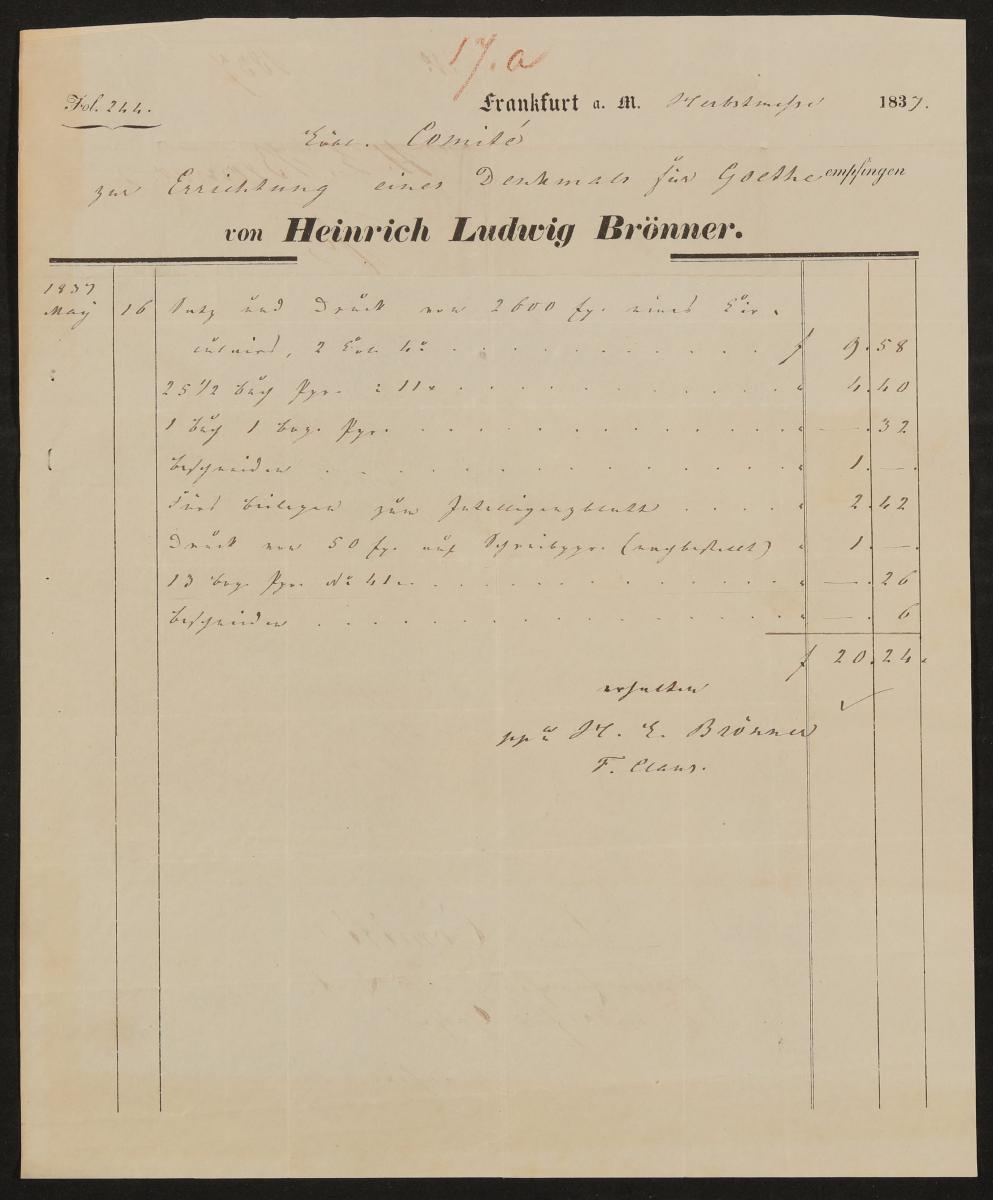 17. a
Fol. 244.
Frankfurt a. M. Herbstmesse 1837.
Löbl. Comité
zur Errichtung eines Denkmals für Goethe empfingen
von Heinrich Ludwig Brönner.
1837
May 16 Satz und Druck von 2600 Ex. eines Cir-
culairs, 2 Col. 4º f 9.58
25 1/2 Buch Ppr. a 11x " 4.40
1 Buch 1 Bog. Ppr. " —.32
beschneiden " 1.—.
Fürs Beilegen zum Intelligenzblatt " 2.42
Druck von 50 Ex. auf Schreibppr. (nachbestellt) " 1.—.
13 Bog. Ppr. Nº 41 " —.26
beschneiden " —.6
f 20.24.
erhalten
ppa H. L. Brönner
F. Claus.